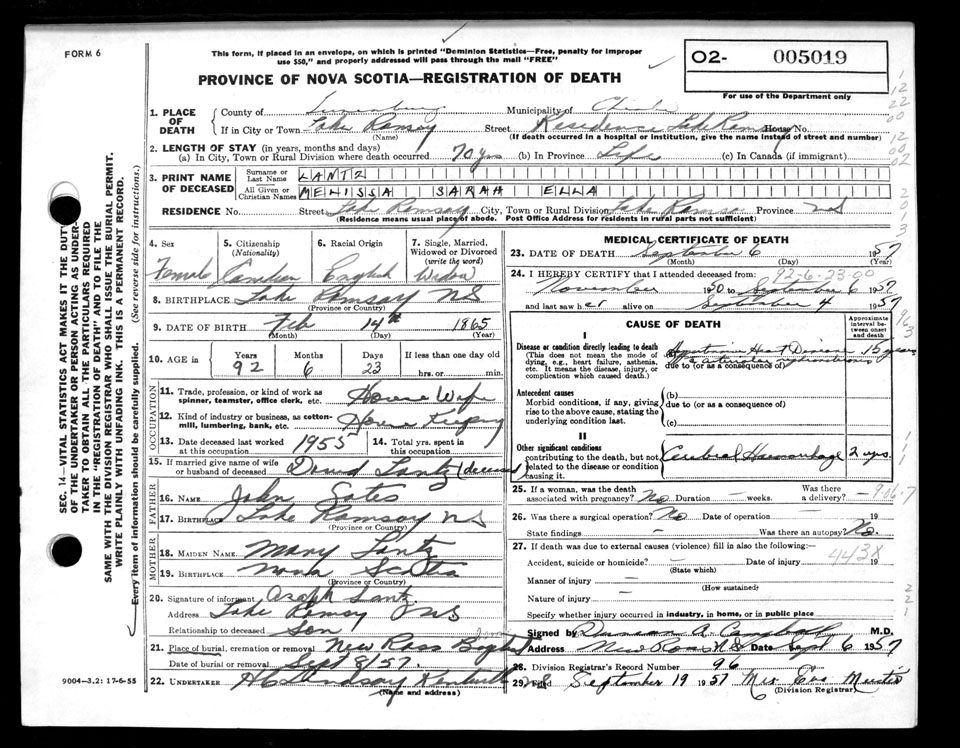 FORM 6
This form, if placed in an envelope, on which is printed "Dominion Statistics—Free, penalty for improper
use $50," and properly addressed will pass through the mail "FREE"
02- 005019
For use of the Department only
PROVINCE OF NOVA SCOTIA—REGISTRATION OF DEATH
1. PLACE OF DEATH County of Lunenburg Municipality of Chester
If in City or Town Lake Ramsay Street Residence Lake Ramsay House No.
(Name) (If death occurred in a hospital or institution, give the name instead of street and number)
2. LENGTH OF STAY (in years, months and days)
(a) In City, Town or Rural Division where death occurred 70 yrs (b) In Province Life (c) In Canada (if immigrant)
3. PRINT NAME OF DECEASED Surname or Last Name LANTZ
All Given or Christian Names MELISSA SARAH ELLA
RESIDENCE No. Street Lake Ramsay City, Town or Rural Division Lake Ramsay Province NS
(Residence means usual place of abode. Post Office Address for residents in rural parts not sufficient)
4. Sex 5. Citizenship (Nationality) 6. Racial Origin 7. Single, Married, Widowed or Divorced (write the word)
Female Canadian English Widow
8. BIRTHPLACE Lake Ramsay NS
(Province or Country)
9. DATE OF BIRTH Feb 14th 1865
(Month) (Day) (Year)
10. AGE in Years Months Days If less than one day old
92 6 23 hrs. or min.
OCCUPATION
11. Trade, profession, or kind of work as spinner, teamster, office clerk, etc. House Wife
12. Kind of industry or business, as cotton-mill, lumbering, bank, etc. House Keeping
13. Date deceased last worked at this occupation 1955 14. Total yrs. spent in this occupation
15. If married give name of wife or husband of deceased David Lantz (deceased)
FATHER
16. NAME John Gates
17. Birthplace Lake Ramsay NS
(Province or Country)
MOTHER
18. MAIDEN NAME Mary Lantz
19. BIRTHPLACE Nova Scotia
(Province or Country)
20. Signature of informant Lantz
Address Lake Ramsay NS
Relationship to deceased Son
21. Place of burial, cremation or removal New Ross Baptist
Date of burial or removal Sept 8/57.
22. UNDERTAKER H C Lindsay Kentville NS
(Name and address)
9004—3.2: 17-6-55
SEC. 14—VITAL STATISTICS ACT MAKES IT THE DUTY
OF THE UNDERTAKER OR PERSON ACTING AS UNDER-
TAKER TO OBTAIN ALL THE PARTICULARS REQUIRED
IN THE "REGISTRATION OF DEATH" AND TO FILE THE
SAME WITH THE DIVISION REGISTRAR WHO SHALL ISSUE THE BURIAL PERMIT.
WRITE PLAINLY WITH UNFADING INK. THIS IS A PERMANENT RECORD.
Every item of information should be carefully supplied. (See reverse side for instructions.)
MEDICAL CERTIFICATE OF DEATH
23. DATE OF DEATH September 6 1957
(Month) (Day) (Year)
92-6-23-00
24. I HEREBY CERTIFY that I attended deceased from:
November 1950 to September 6 1957
and last saw her alive on September 4 1957
CAUSE OF DEATH
Approximate interval between onset and death
I
Disease or condition directly leading to death
(This does not mean the mode of dying, e.g., heart failure, asthenia, etc. It means the disease, injury, or complication which caused death.)
Hypertensive Heart Disease 15 years
due to (or as a consequence of)
Antecedent causes
Morbid conditions, if any, giving rise to the above cause, stating the underlying condition last.
(b)
due to (or as a consequence of)
(c)
II
Other significant conditions
contributing to the death, but not related to the disease or condition causing it.
Cerebral Haemorrhage 2 yrs.
25. If a woman, was the death associated with pregnancy? No Duration — weeks. Was there a delivery? —
26. Was there a surgical operation? No Date of operation — 19
State findings — Was there an autopsy? No.
27. If death was due to external causes (violence) fill in also the following:—
443X
Accident, suicide or homicide? — Date of injury 19
(State which)
Manner of injury —
(How sustained)
Nature of injury —
Specify whether injury occurred in industry, in home, or in public place
Signed by Duncan A. Campbell M.D.
Address New Ross N.S. Date Sept 6 1957
28. Division Registrar's Record Number 96
29. Filed September 19 1957 Mrs Eva
(Division Registrar)